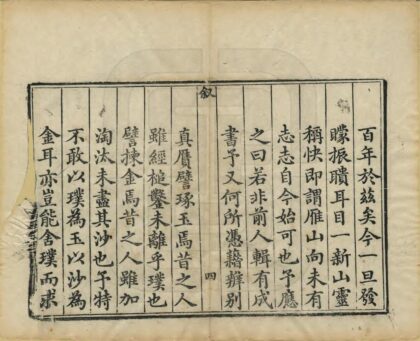 百年於茲矣今一旦發
矇振聵耳目一新山靈
稱快即謂雁山向未有
志志自今始可也予應
之曰若非前人輯有成
書予又何所憑藉辨別
叙
四
真贗譬琢玉焉昔之人
雖經槌鑿未離乎璞也
譬揀金焉昔之人雖加
淘汰未盡其沙也予特
不敢以璞為玉以沙為
金耳亦豈能舍璞而求